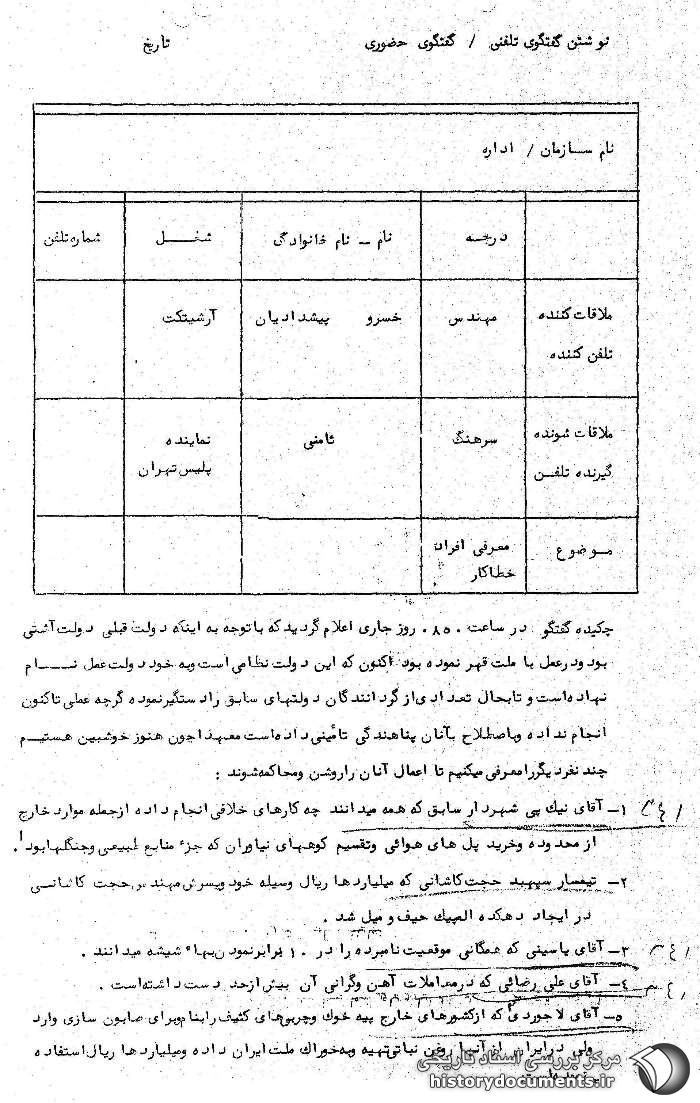 نوشتن گفتگوی تلفنی / گفتگوی حضوری تاریخ
نام سازمان / اداره
درجه نام - نام خانوادگی شغل شماره تلفن
ملاقات کننده مهندس خسرو پیشدادیان آرشیتکت
تلفن کننده
ملاقات شونده سرهنگ ثامنی نماینده
گیرنده تلفن پلیس تهران
موضوع معرفی افراد
خطاکار
چکیده گفتگو در ساعت ۰۸۵۰ روز جاری اعلام گردید که با توجه به اینکه دولت قبلی دولت آشتی
بود و در عمل با ملت قهر نموده بود اکنون که این دولت نظامی است و به خود دولت عمل نام
نهاده است و تا بحال تعدادی از گردانندگان دولتهای سابق را دستگیر نموده گرچه عملی تاکنون
انجام نداده و باصطلاح بآنان پناهندگی تأمینی داده است معهذا چون هنوز خوشبین هستیم
چند نفر دیگر را معرفی میکنیم تا اعمال آنان را روشن و محاکمه شوند :
۱- آقای نیک پی شهردار سابق که همه میدانند چه کارهای خلافی انجام داده از جمله موارد خارج
از محدوده و خرید پل های هوائی و تقسیم کوههای نیاوران که جزء منابع طبیعی و جنگلها بود .
۲- تیمسار سپهبد حجت کاشانی که میلیاردها ریال وسیله خود و پسرش مهندس حجت کاشانی
در ایجاد دهکده المپیک حیف و میل شد .
۳- آقای یاسینی که همگانی موقعیت نامبرده را در ۱۰ برابر نمودن بهاء شیشه میدانند .
۴- آقای علی رضائی که در معاملات آهن و گرانی آن بیش از حد دست داشته است .
۵- آقای لاجوردی که از کشورهای خارج پیه خوک و چربی های کثیف را بنام و برای صابون سازی وارد
ولی در ایران از آنها روغن نباتی تهیه و به خوراک ملت ایران داده و میلیاردها ریال استفاده
نموده است
مرکز بررسی اسناد تاریخی
historydocuments.ir